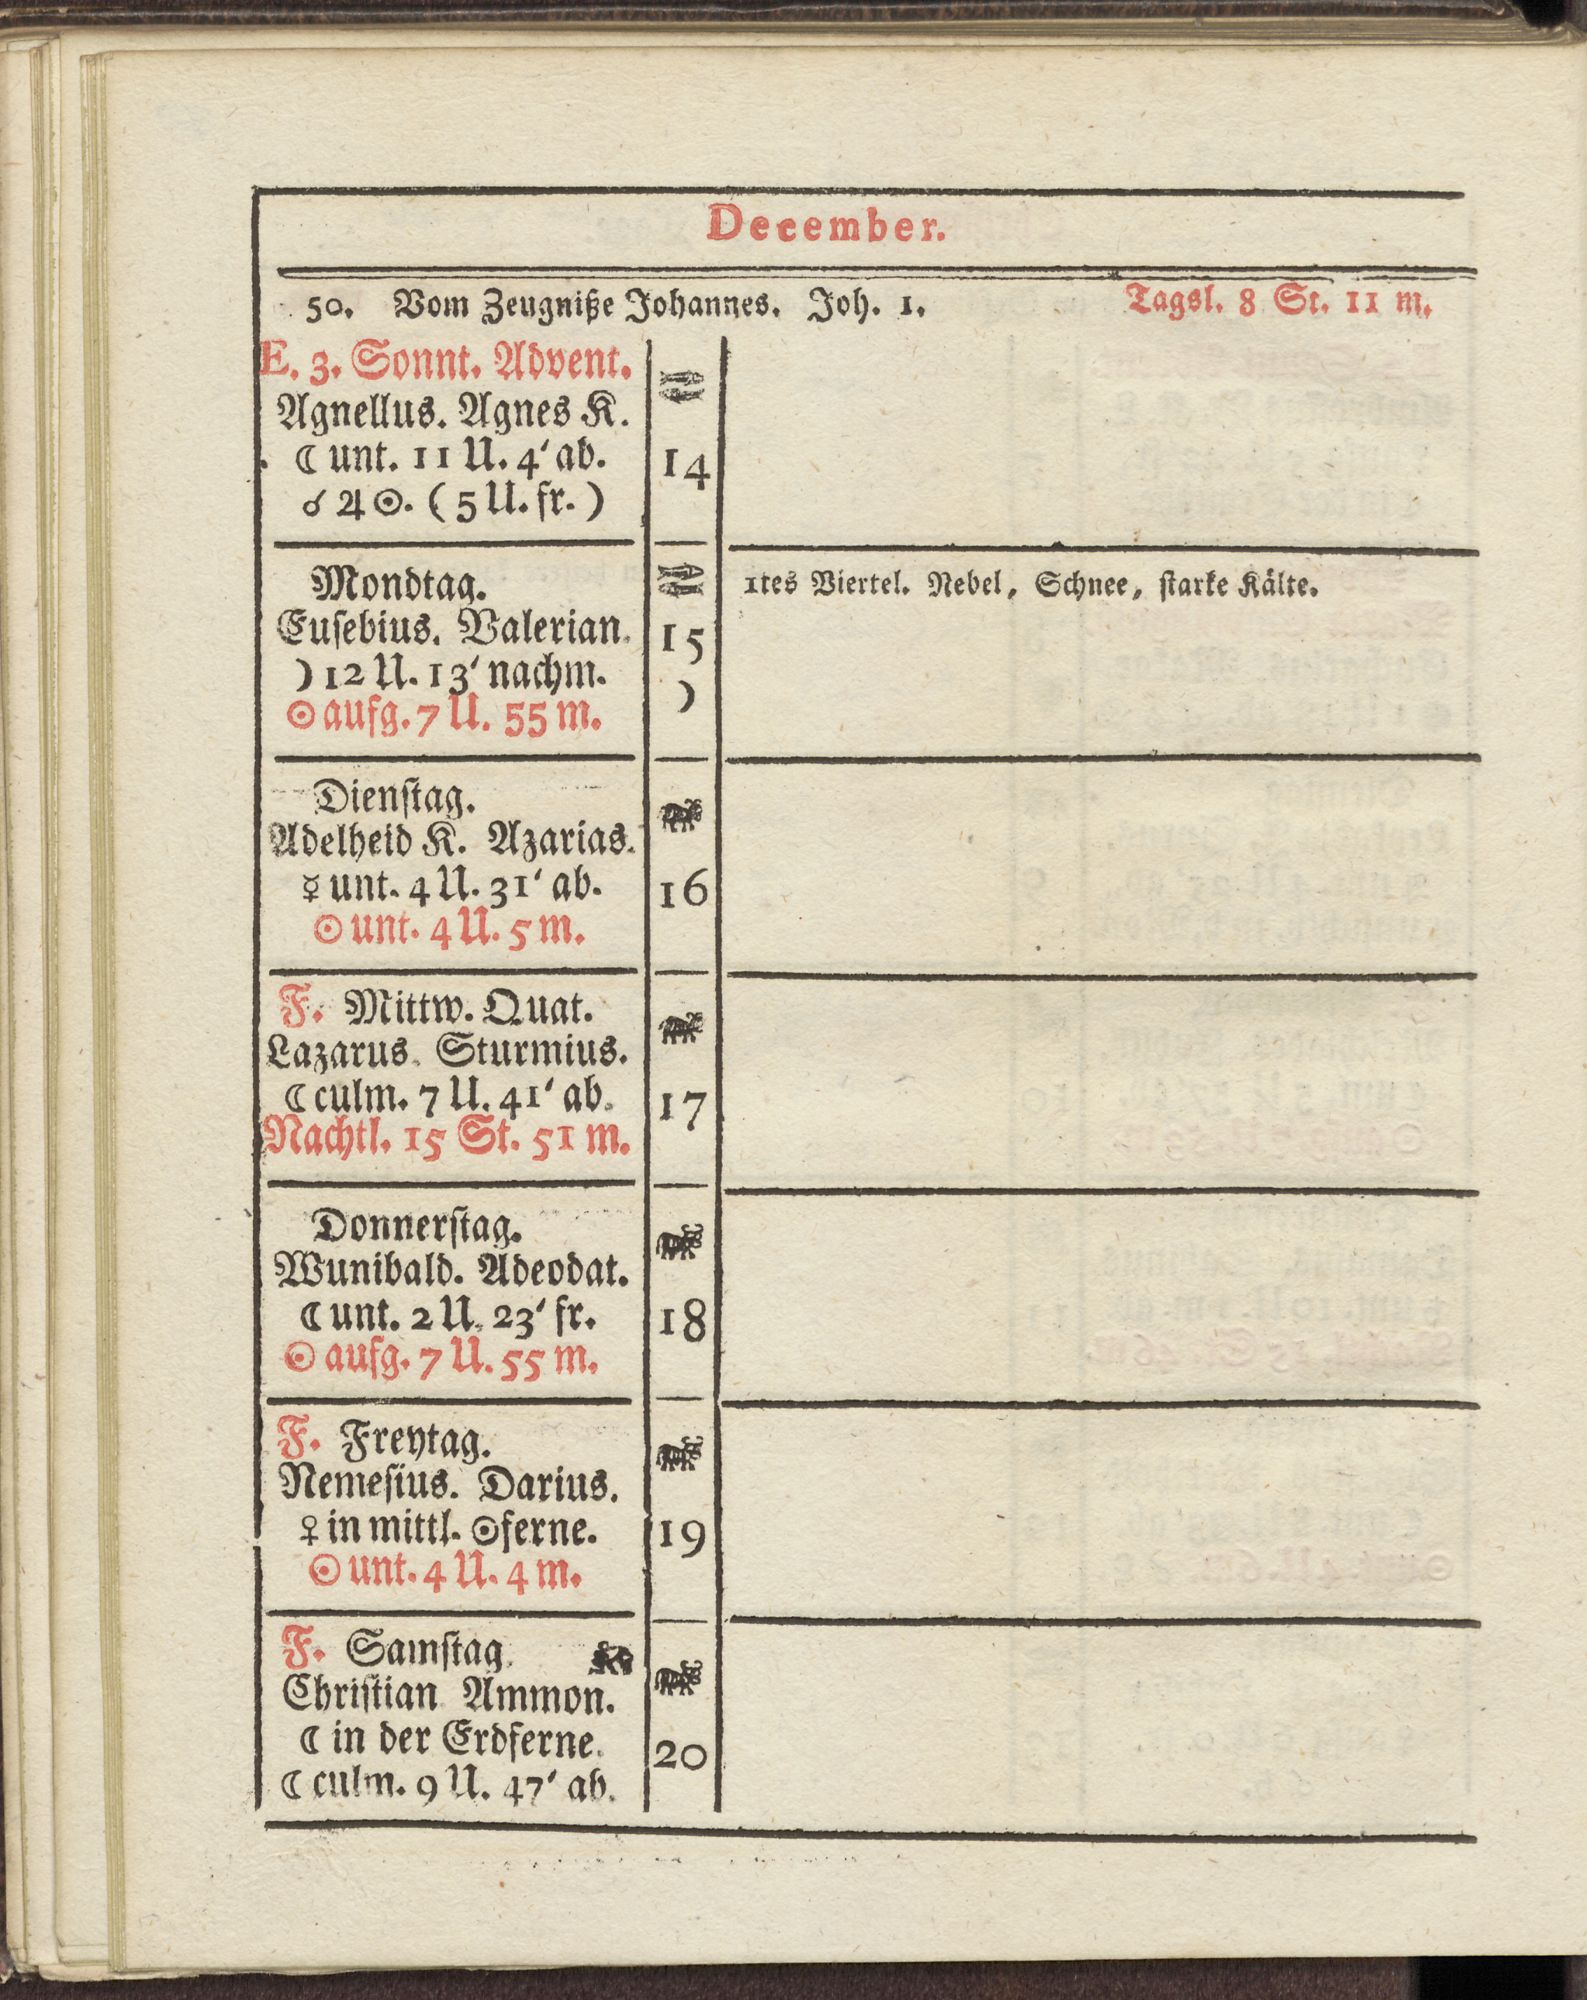 December.
50. Vom Zeugniße Johannes. Joh. 1. Tagsl. 8 St. 11 m.
E. 3. Sonnt. Advent.
Agnellus. Agnes K.
☾ unt. 11 U. 4′ ab.
☌ ♃ ☉. (5 U. fr.)
14
Mondtag.
Euſebius. Valerian.
) 12 U. 13′ nachm.
☉ aufg. 7 U. 55 m.
15
)
1tes Viertel. Nebel, Schnee, ſtarke Kälte.
Dienſtag.
Adelheid K. Azarias.
☿ unt. 4 U. 31′ ab.
☉ unt. 4 U. 5 m.
16
F. Mittw. Quat.
Lazarus. Sturmius.
☾ culm. 7 U. 41′ ab.
Nachtl. 15 St. 51 m.
17
Donnerſtag.
Wunibald. Adeodat.
☾ unt. 2 U. 23′ fr.
☉ aufg. 7 U. 55 m.
18
F. Freytag.
Nemeſius. Darius.
♀ in mittl. ☉ferne.
☉ unt. 4 U. 4 m.
19
F. Samſtag.
Chriſtian Ammon.
☾ in der Erdferne.
☾ culm. 9 U. 47′ ab.
20